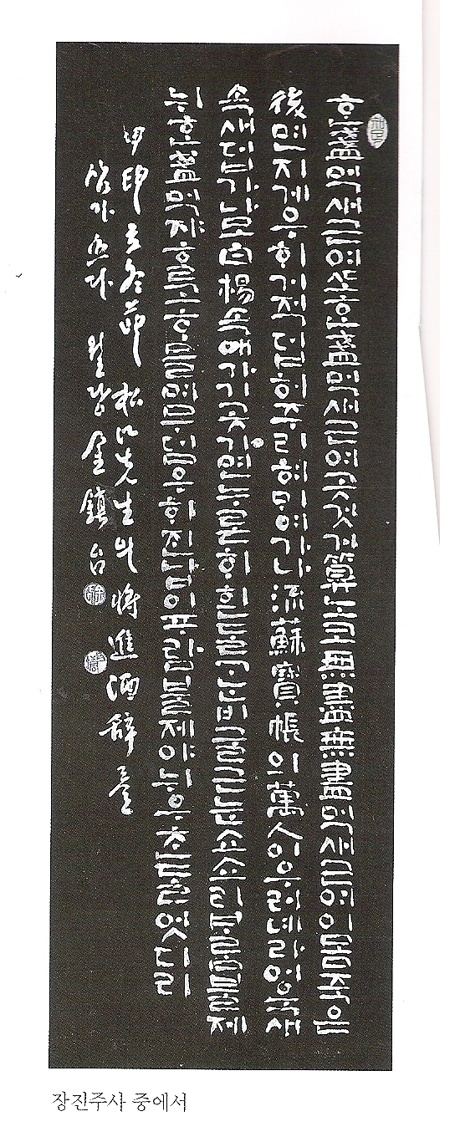 ᄒᆞᆫ盞먹새근여ᄯᅩᄒᆞᆫ盞먹새근여곳것거算노코無盡無盡먹새근여이몸죽은
後면지게우ᄒᆡ거적덥허주리혀ᄆᆡ여가나流蘇寶帳의萬人이우러녜나어욱새
속새덥가나모白楊속애가기곳가면누른ᄒᆡ흰ᄃᆞᆯᄀᆞᄂᆞᆫ비굴근눈쇼쇼리ᄇᆞ람블제
뉘ᄒᆞᆫ盞먹쟈ᄒᆞᆯ고ᄒᆞ믈며무덤우ᄒᆡ진나비ᄑᆞ람불제야뉘우ᄎᆞᆫᄃᆞᆯ엇디리
甲申立冬節 松江先生의 將進酒辭를
삼가 쓰다 金鎭台
장진주사 중에서